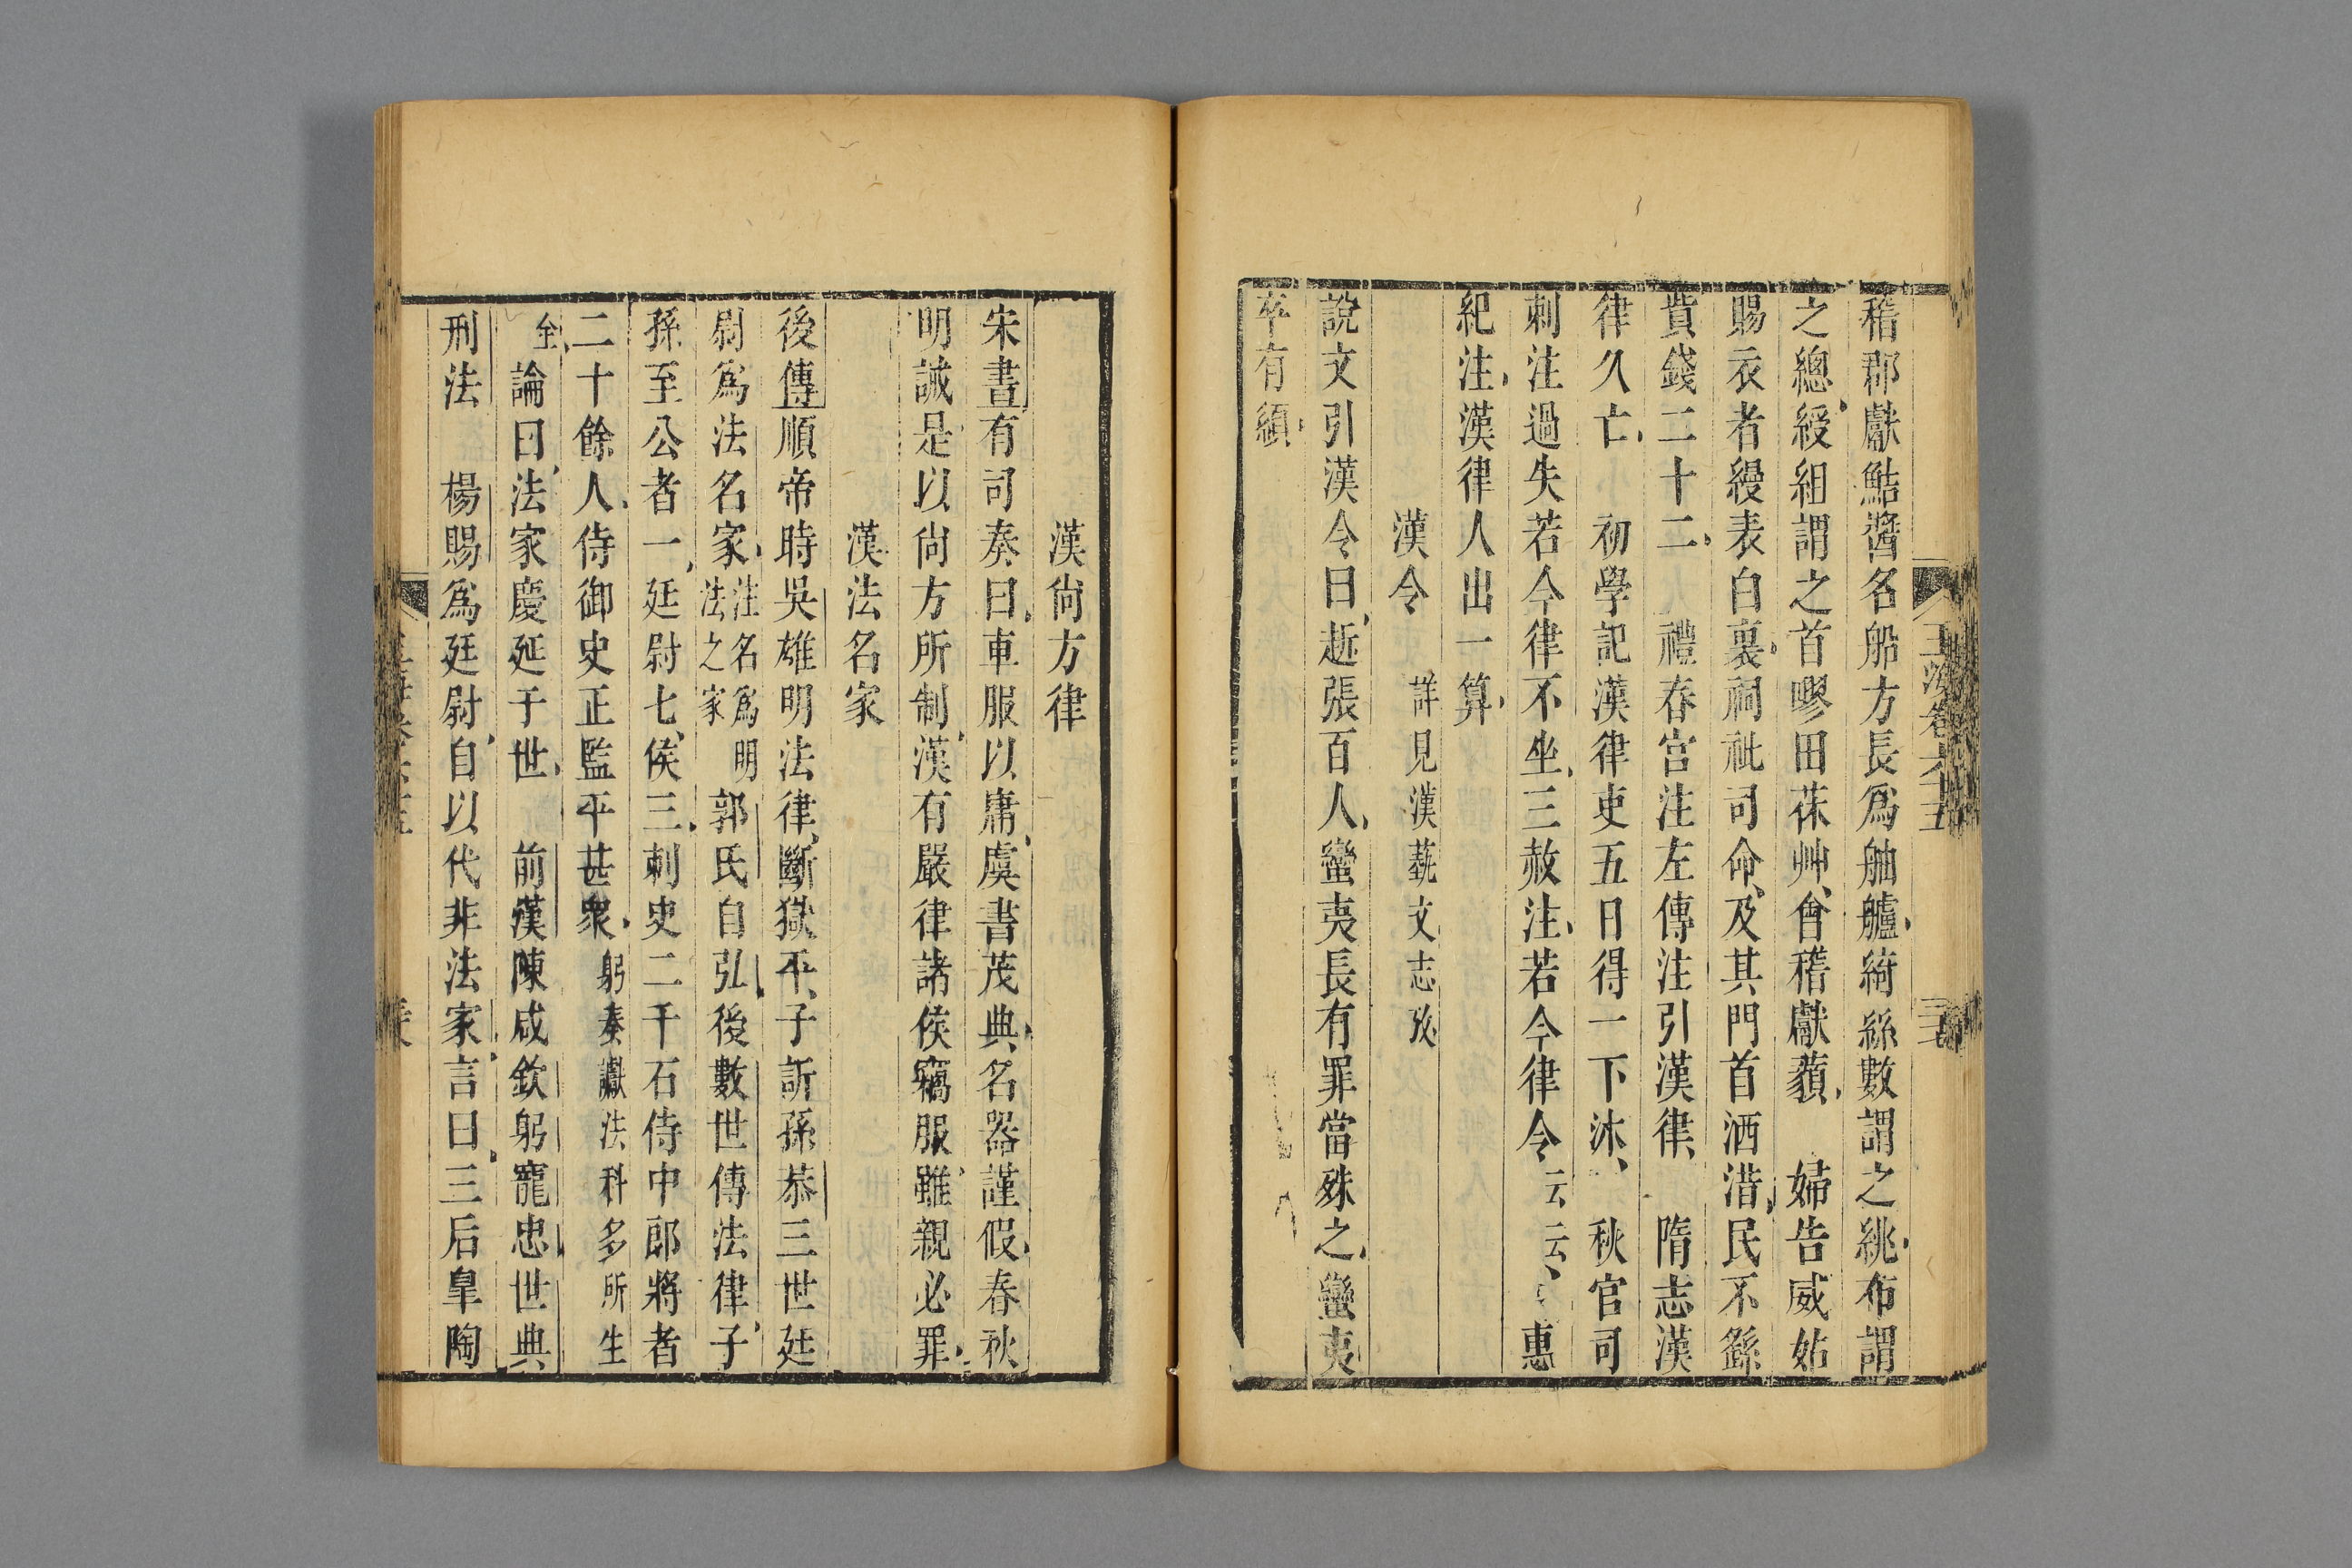 稽郡獻鮚醬名船方長爲舳艫綺絲數謂之絩布謂
之總綬組謂之首嘐田茠艸會稽獻藙　婦告威姑
賜衣者縵表白裏祠祉司命及其門首洒浩民不繇
貲錢二十二　禮春官注左傳注引漢律　隋志漢
律久亡　初學記漢律吏五日得一下沐　秋官司
刺注過失若今律不坐三赦注若今律令云云　惠
紀注漢律人出一算
漢令　詳見漢藝文志攷
說文引漢令曰趀張百人蠻夷長有罪當殊之蠻夷
卒有䫙
漢尙方律
宋書有司奏曰車服以庸虞書茂典名器謹假春秋
明誡是以尙方所制漢有嚴律諸侯竊服雖親必罪
漢法名家
後傳順帝時吳雄明法律斷獄平子訢孫恭三世廷
尉爲法名家注名爲明法之家　郭氏自弘後數世傳法律子
孫至公者一廷尉七侯三刺史二千石侍中郎將者
二十餘人侍御史正監平甚衆　躬奏讞法科多所生
全　論曰法家慶延于世　前漢陳咸欽躬寵忠世典
刑法　楊賜爲廷尉自以代非法家言曰三后皐陶